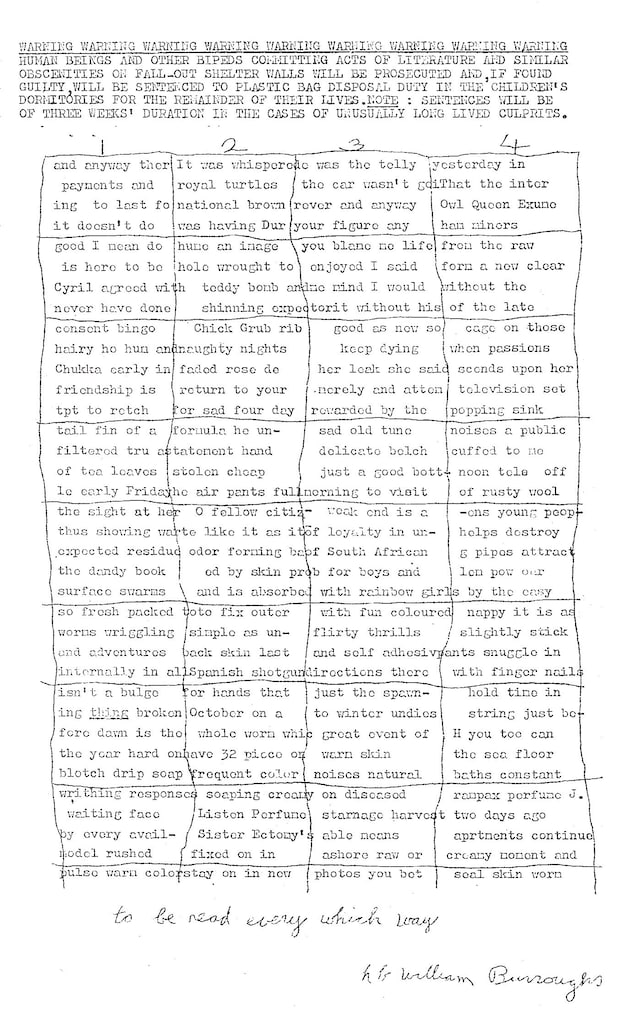 WARNING WARNING WARNING WARNING WARNING WARNING WARNING WARNING WARNING
HUMAN BEINGS AND OTHER BIPEDS COMMITTING ACTS OF LITERATURE AND SIMILAR
OBSCENITIES ON FALL-OUT SHELTER WALLS WILL BE PROSECUTED AND,IF FOUND
GUILTY,WILL BE SENTENCED TO PLASTIC BAG DISPOSAL DUTY IN THE CHILDREN'S
DORMITORIES FOR THE REMAINDER OF THEIR LIVES.NOTE : SENTENCES WILL BE
OF THREE WEEKS' DURATION IN THE CASES OF UNUSUALLY LONG LIVED CULPRITS.
1 2 3 4
and anyway ther It was whispered e was the telly yesterday in
payments and royal turtles the car wasn't goi That the inter
ing to last fo national brown rever and anyway Owl Queen Exume
it doesn't do was having Dur your figure any ham miners
good I mean do hume an image you blame me life from the raw
is here to be hole wrought to enjoyed I said form a new clear
Cyril agreed with teddy bomb and me mind I would without the
never have done shinning expector it without his of the late
consent bingo Chick Grub rib good as new so cage on those
hairy ho hum and naughty nights keep dying when passions
Chukka early in faded rose de her leak she said scends upon her
friendship is return to your merely and atten television set
tpt to retch for sad four day rewarded by the popping sink
tail fin of a formula he un- sad old tune noises a public
filtered tru a statement hand delicate belch cuffed to me
of tea leaves stolen cheap just a good bott- noon tele off
le early Friday he air pants full morning to visit of rusty wool
the sight at her O fellow citiz- weak end is a -ens young peop-
thus showing war te like it as it of loyalty in un- helps destroy
expected residue odor forming ba of South African g pipes attract
the dandy book ed by skin prob for boys and lem pow our
surface swarms and is absorbed with rainbow girls by the easy
so fresh packed to to fix outer with fun coloured nappy it is as
worms wriggling simple as un- flirty thrills slightly stick
and adventures back skin last and self adhesiv pants snuggle in
internally in all Spanish shotgun directions there with finger nails
isn't a bulge for hands that just the spawn- hold time in
ing thing broken October on a to winter undies string just be-
fore dawn is the whole worm whic great event of H you too can
the year hard on have 32 piece on warm skin the sea floor
blotch drip soap frequent color noises natural baths constant
writhing responses soaping creamy on diseased rampax perfume J.
waiting face Listen Perfume starmage harvest two days ago
by every avail- Sister Ectomy's able means aprtments continue
model rushed fixed on in ashore raw or creamy moment and
pulse warm color stay on in new photos you bet seal skin worm
to be read every which way
William Burroughs